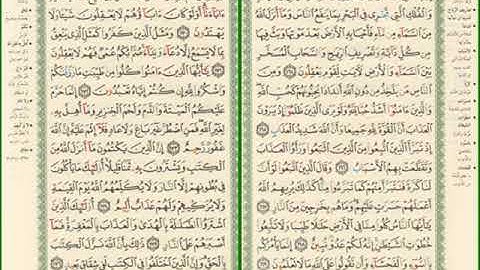 وَالْفُلْكِ الَّتِي تَجْرِي فِي الْبَحْرِ بِمَا يَنفَعُ النَّاسَ وَمَا أَنزَلَ اللَّهُ
مِنَ السَّمَاءِ مِن مَّاءٍ فَأَحْيَا بِهِ الْأَرْضَ بَعْدَ مَوْتِهَا وَبَثَّ فِيهَا
مِن كُلِّ دَابَّةٍ وَتَصْرِيفِ الرِّيَاحِ وَالسَّحَابِ الْمُسَخَّرِ
بَيْنَ السَّمَاءِ وَالْأَرْضِ لَآيَاتٍ لِّقَوْمٍ يَعْقِلُونَ ١٦٤
وَمِنَ النَّاسِ مَن يَتَّخِذُ مِن دُونِ اللَّهِ أَندَادًا يُحِبُّونَهُمْ كَحُبِّ اللَّهِ
وَالَّذِينَ ءَامَنُوا أَشَدُّ حُبًّا لِّلَّهِ وَلَوْ يَرَى الَّذِينَ ظَلَمُوا إِذْ يَرَوْنَ
الْعَذَابَ أَنَّ الْقُوَّةَ لِلَّهِ جَمِيعًا وَأَنَّ اللَّهَ شَدِيدُ الْعَذَابِ ١٦٥
إِذْ تَبَرَّأَ الَّذِينَ اتُّبِعُوا مِنَ الَّذِينَ اتَّبَعُوا وَرَأَوُا الْعَذَابَ
وَتَقَطَّعَتْ بِهِمُ الْأَسْبَابُ ١٦٦ وَقَالَ الَّذِينَ اتَّبَعُوا لَوْ أَنَّ
لَنَا كَرَّةً فَنَتَبَرَّأَ مِنْهُمْ كَمَا تَبَرَّءُوا مِنَّا كَذَلِكَ يُرِيهِمُ اللَّهُ
أَعْمَالَهُمْ حَسَرَاتٍ عَلَيْهِمْ وَمَا هُم بِخَارِجِينَ مِنَ النَّارِ ١٦٧
يَا أَيُّهَا النَّاسُ كُلُوا مِمَّا فِي الْأَرْضِ حَلَالًا طَيِّبًا وَلَا تَتَّبِعُوا
خُطُوَاتِ الشَّيْطَانِ إِنَّهُ لَكُمْ عَدُوٌّ مُّبِينٌ ١٦٨ إِنَّمَا يَأْمُرُكُم
بِالسُّوءِ وَالْفَحْشَاءِ وَأَن تَقُولُوا عَلَى اللَّهِ مَا لَا تَعْلَمُونَ ١٦٩
ءَابَاءَنَا أَوَلَوْ كَانَ ءَابَاؤُهُمْ لَا يَعْقِلُونَ شَيْئًا وَلَا
يَهْتَدُونَ ١٧٠ وَمَثَلُ الَّذِينَ كَفَرُوا كَمَثَلِ الَّذِي يَنْعِقُ
بِمَا لَا يَسْمَعُ إِلَّا دُعَاءً وَنِدَاءً صُمٌّ بُكْمٌ عُمْيٌ فَهُمْ لَا يَعْقِلُونَ
١٧١ يَا أَيُّهَا الَّذِينَ ءَامَنُوا كُلُوا مِن طَيِّبَاتِ مَا رَزَقْنَاكُمْ
وَاشْكُرُوا لِلَّهِ إِن كُنتُمْ إِيَّاهُ تَعْبُدُونَ ١٧٢ إِنَّمَا حَرَّمَ
عَلَيْكُمُ الْمَيْتَةَ وَالدَّمَ وَلَحْمَ الْخِنزِيرِ وَمَا أُهِلَّ بِهِ
لِغَيْرِ اللَّهِ فَمَنِ اضْطُرَّ غَيْرَ بَاغٍ وَلَا عَادٍ فَلَا إِثْمَ عَلَيْهِ إِنَّ اللَّهَ
غَفُورٌ رَّحِيمٌ ١٧٣ إِنَّ الَّذِينَ يَكْتُمُونَ مَا أَنزَلَ اللَّهُ مِنَ
الْكِتَابِ وَيَشْتَرُونَ بِهِ ثَمَنًا قَلِيلًا أُولَئِكَ مَا يَأْكُلُونَ
فِي بُطُونِهِمْ إِلَّا النَّارَ وَلَا يُكَلِّمُهُمُ اللَّهُ يَوْمَ الْقِيَامَةِ
وَلَا يُزَكِّيهِمْ وَلَهُمْ عَذَابٌ أَلِيمٌ ١٧٤ أُولَئِكَ الَّذِينَ
اشْتَرَوُا الضَّلَالَةَ بِالْهُدَى وَالْعَذَابَ بِالْمَغْفِرَةِ فَمَا
أَصْبَرَهُمْ عَلَى النَّارِ ١٧٥ ذَلِكَ بِأَنَّ اللَّهَ نَزَّلَ الْكِتَابَ
بِالْحَقِّ وَإِنَّ الَّذِينَ اخْتَلَفُوا فِي الْكِتَابِ لَفِي شِقَاقٍ بَعِيدٍ